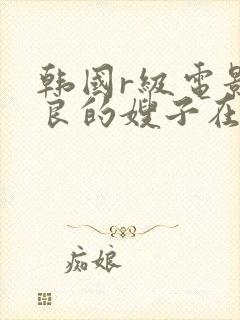 韩國r級電影
良的嫂子在
痴娘